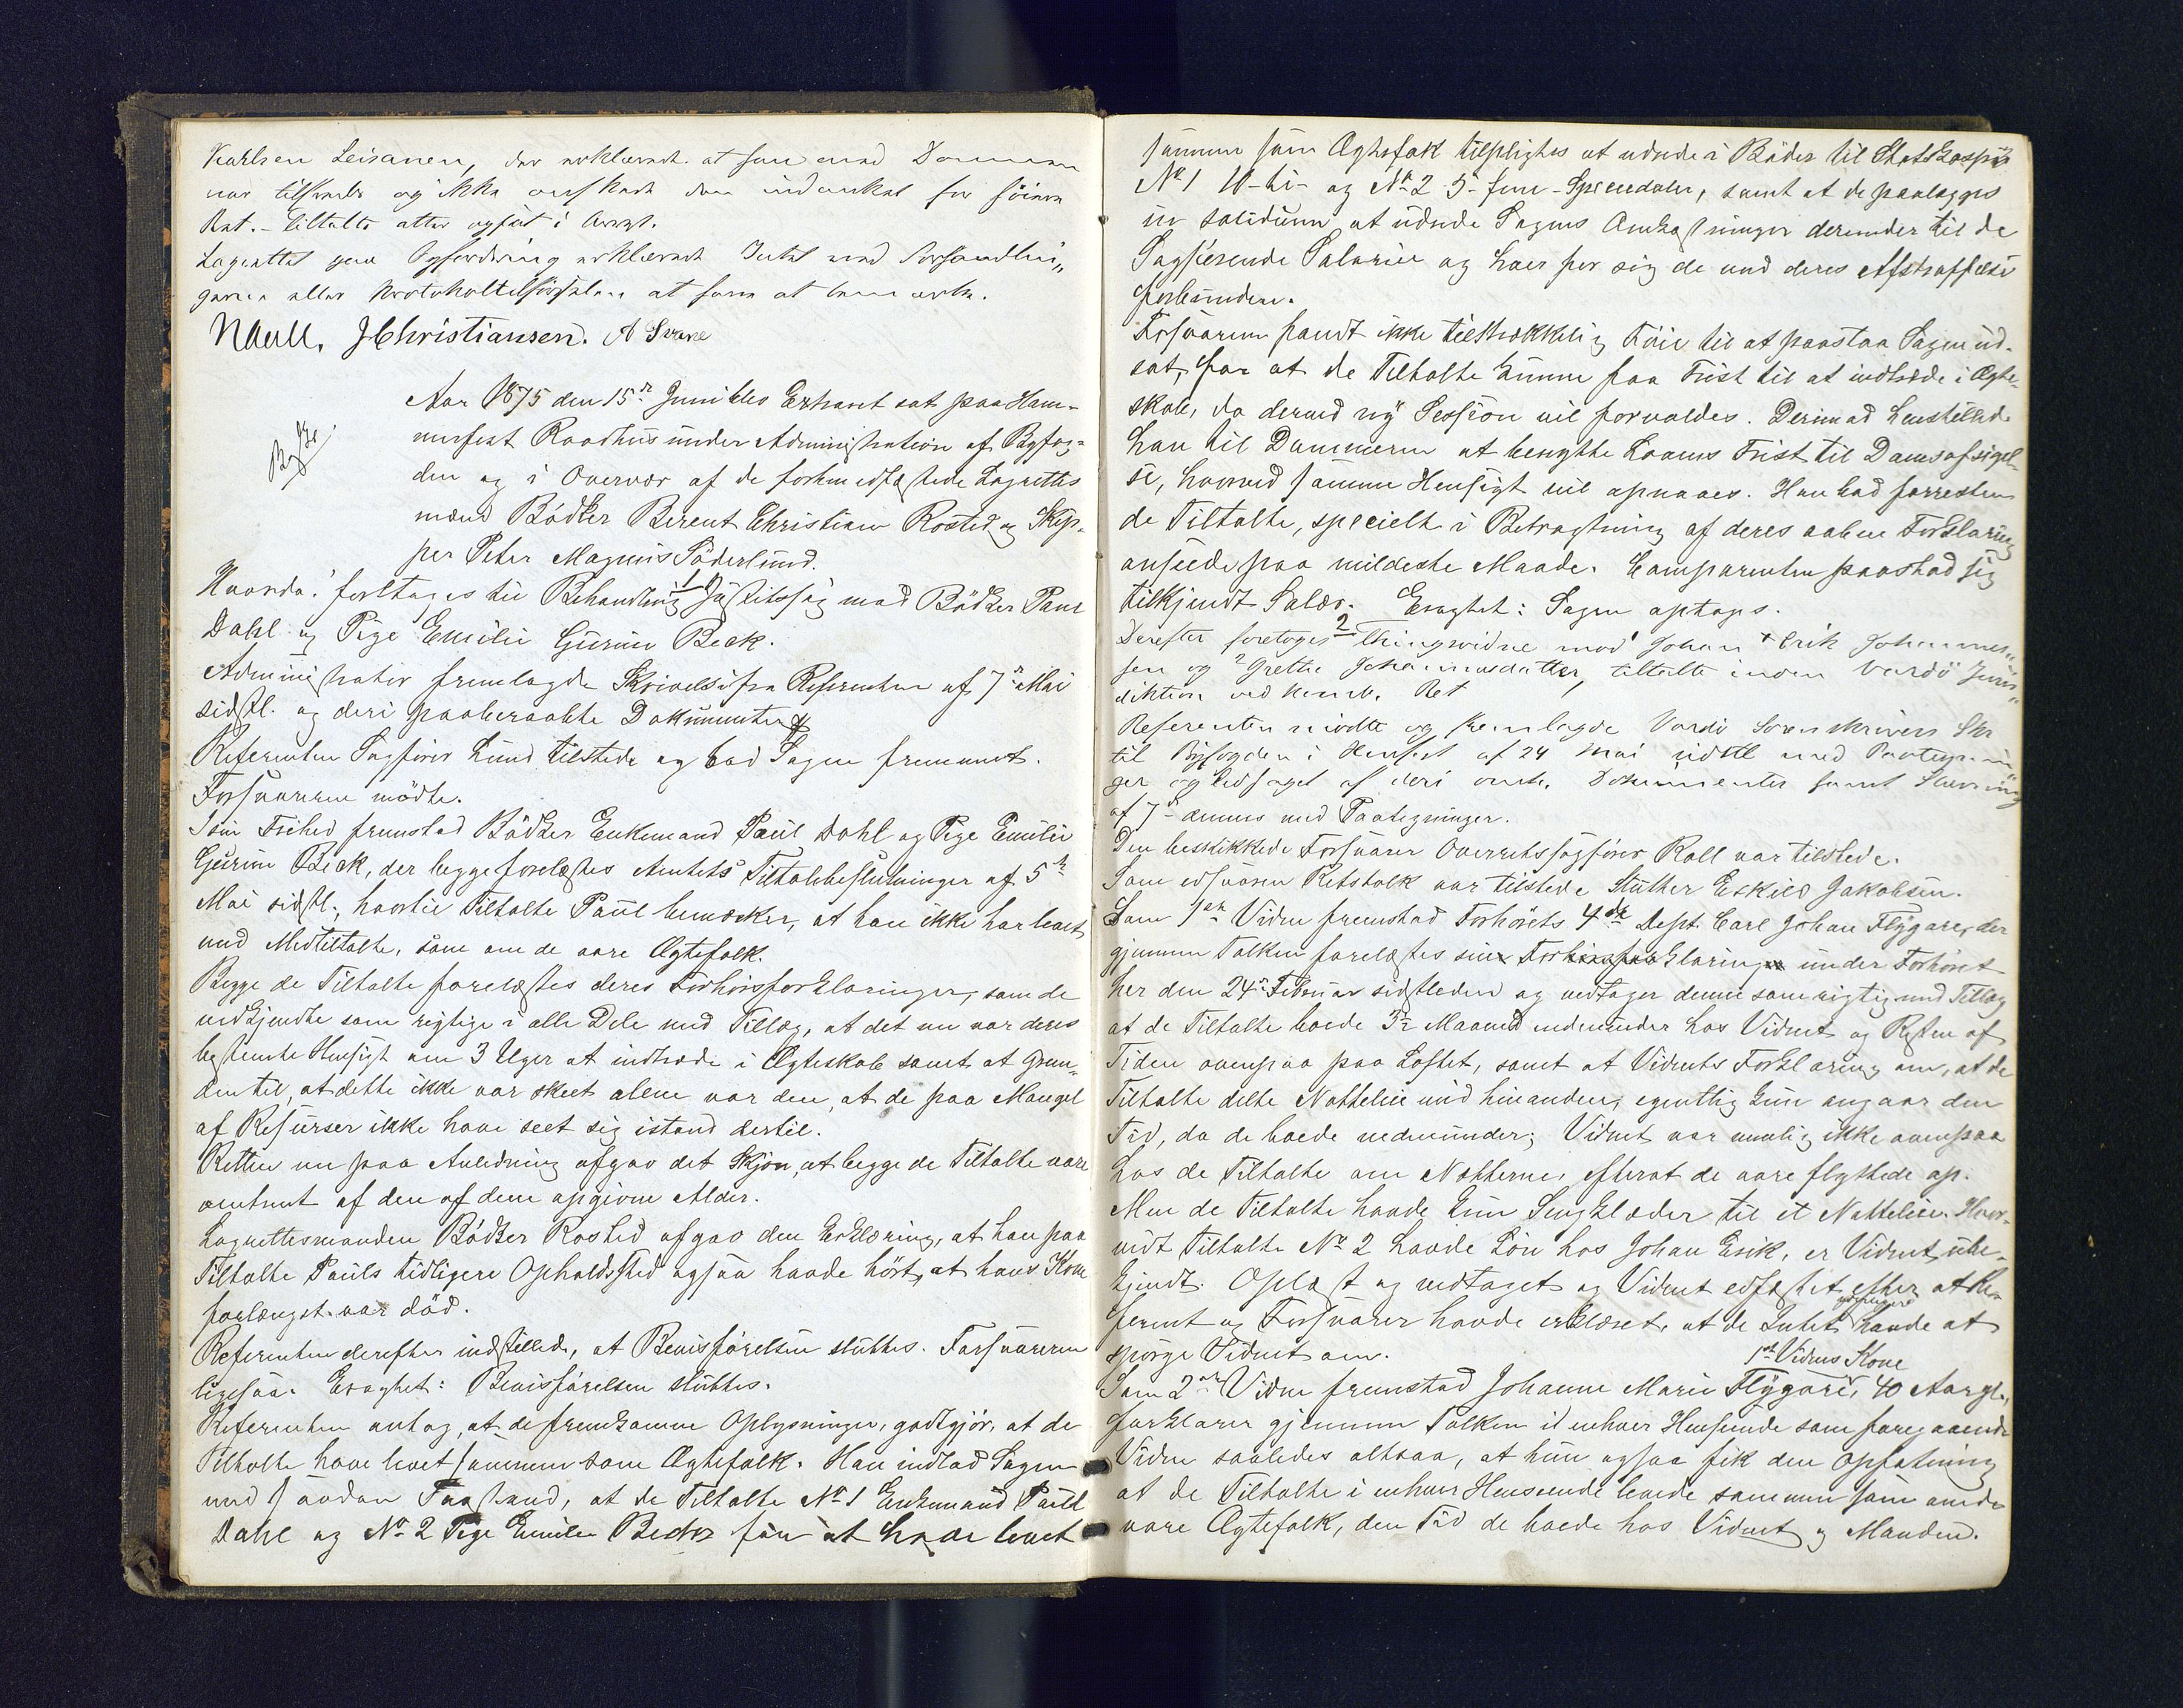 Karlsen Leisanen, der erklærede at han med Dommen
var tilfreds og ikke ønskede den indanket for höiere
Ret. - Tiltalte atter afsat i Arrest.
Lagrettet paa Opfordring erklærede Intet med Forhandlin„
garne eller Protokoltilførselen at have at bemærke.
NAall. JChristiansen. A Svane
Aar 1875 den 15de Juni blev Extraret sat paa Ham-
merfest Raadhus under Administration af Byfog-
den og i Overvær af de forhen edfæstede Lagrettes
mænd Bödker Berent Christian Rosted og Skip-
per Peter Magnus Söderlund.
Hvorda: foretages til Behandling 1) Justitssag mod Bödker Paul
Dahl og Pige Emilie Gurine Beck.
Administrator fremlagde Skrivelse fra Referenten af 7de Mai
sidstl. og deri paaberaabte Dokumenter
Referenten Sagförer Lund tilstede og bad Sagen fremmet.
Forsvareren mödte.
I sin Frihed fremstod Bödker Enkemand Paul Dahl og Pige Emilie
Gurine Beck, der begge forelæstes Amtets Tiltalebeslutninger af 5te
Mai sidstl., hvortil Tiltalte Paul bemærker, at han ikke har levet
med Medtiltalte, som om de vare Ægtefolk.
Begge de Tiltalte forelæstes deres Forhörsforklaringer, som de
vedkjendte som rigtige i alle Dele med Tillæg, at det nu var deres
bestemte Hensigt om 3 Uger at indtræde i Ægteskab samt at Grun-
den til, at dette ikke var skeet alene var den, at de paa Mangel
af Resurser ikke have seet sig istand dertil.
Retten nu paa Anledning afgav det Skjön, at begge de Tiltalte vare
omtrent af den af dem opgivne Alder.
Lagrettesmanden Bödker Rosted afgav den Erklæring, at han paa
Tiltalte Pauls tidligere Opholdssted ogsaa havde hört, at hans Kone
forlængst var död.
Referenten derefter indstillede, at Bevisförelsen sluttes. Forsvareren
ligesaa. Eragtet: Bevisförelsen sluttes.
Referenten antog, at de fremkomne Oplysninger, godtgjör, at de
Tiltalte have levet sammen som Ægtefolk. Han indlod Sagen
med saadan Paastand, at de Tiltalte No 1 Enkemand Paul
Dahl og No 2 Pige Emilie Beck for at have levet
sammen som Ægtefolk tilpligtes at udrede i Böder til Statskassen
No 1 10-ti- og No 2 5-fem-Speciedaler, samt at de paalægges
in solidum at udrede Sagens Omkostninger derunder til de
Sagförende Salarier og hver for sig de med deres Afstraffelse
forbundne.
Forsvareren fandt ikke tilstrækkelig Föie til at paastaa Sagen ud-
sat, for at de Tiltalte kunne faa Frist til at indtræde i Ægte-
skab, da derved ny Session vil forvoldes. Derimod henstillede
han til Dommeren at benytte Lovens Frist til Domsafsigel-
se, hvorved samme Hensigt vil opnaaes. Han bad forresten
de Tiltalte, specielt i Betragtning af deres aabne Forklaring
anseede paa mildeste Maade. Comparenten paastod sig
tilkjendt Salær. Eragtet: Sagen optages.
Derefter foretoges 2 Thingsvidne mod 1 Johan Erik Johannes„
sen og 2 Grethe Johannesdatter, tiltalte inden Vardö Juris„
diktion ved Ret
Referenten mödte og fremlagde Vardö Sorenskrivers Skr
til Byfogden i Hamfest af 24 Mai sidstl med Paategnin
ger og ledsaget af deri omh. Dokumenter samt Stævning
af 7de dennes med Paategninger.
Den beskikkede Forsvarer Overretssagförer Roll var tilstede.
Som edsvoren Retstolk var tilstede Eskild Jakobsen.
Som 1ste Vidne fremstod Forhörets 4de Dept. Carl Johan Flygare, der
gjennem Tolken forelæstes sin Forklaring under Forhöret
her den 24de Februar sidstleden og vedtager denne som rigtig med Tillæg
at de Tiltalte boede 3½ Maaned nedenunder hos Vidnet og Resten af
Tiden ovenpaa paa Loftet, samt at Vidnets Forklaring om, at de
Tiltalte delte Natteleie med hinanden, egentlig kun angaar den
Tid, da de boede nedenunder; Vidnet var nemlig ikke ovenpaa
hos de Tiltalte om Nætterne, efterat de vare flyttede op.
Men de Tiltalte havde kun Sengklæder til et Natteleie. Hvor-
vidt Tiltalte No 2 havde Lön hos Johan Erik, er Vidnet ube-
kjendt. Oplæst og vedtaget og Vidnet edfæstet efter at Re-
ferent og Forsvarer havde erklæret, at de Intet yderligere havde at
spörge Vidnet om.
Som 2det Vidne fremstod Johanne Marie Flygare, 1ste Vidnes Kone 40 Aar gl.,
forklarer gjennem Tolken i enhver Henseende som foregaaende
Vidne saaledes altsaa, at hun ogsaa fik den Opfatning
at de Tiltalte i enhver Henseende levede sammen som om de
vare Ægtefolk, den Tid de boede hos Vidnet og Manden.